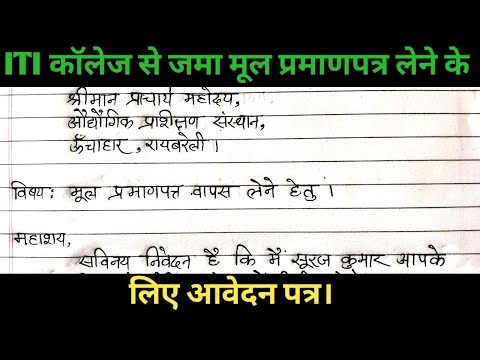 ITI कॉलेज से जमा मूल प्रमाणपत्र लेने के
श्रीमान प्राचार्य महोदय,
औद्योगिक प्रशिक्षण संस्थान,
ऊँचाहार, रायबरेली ।
विषय: मूल प्रमाणपत्र वापस लेने हेतु ।
महाशय,
सविनय निवेदन है कि मैं सूरज कुमार आपके
लिए आवेदन पत्र।